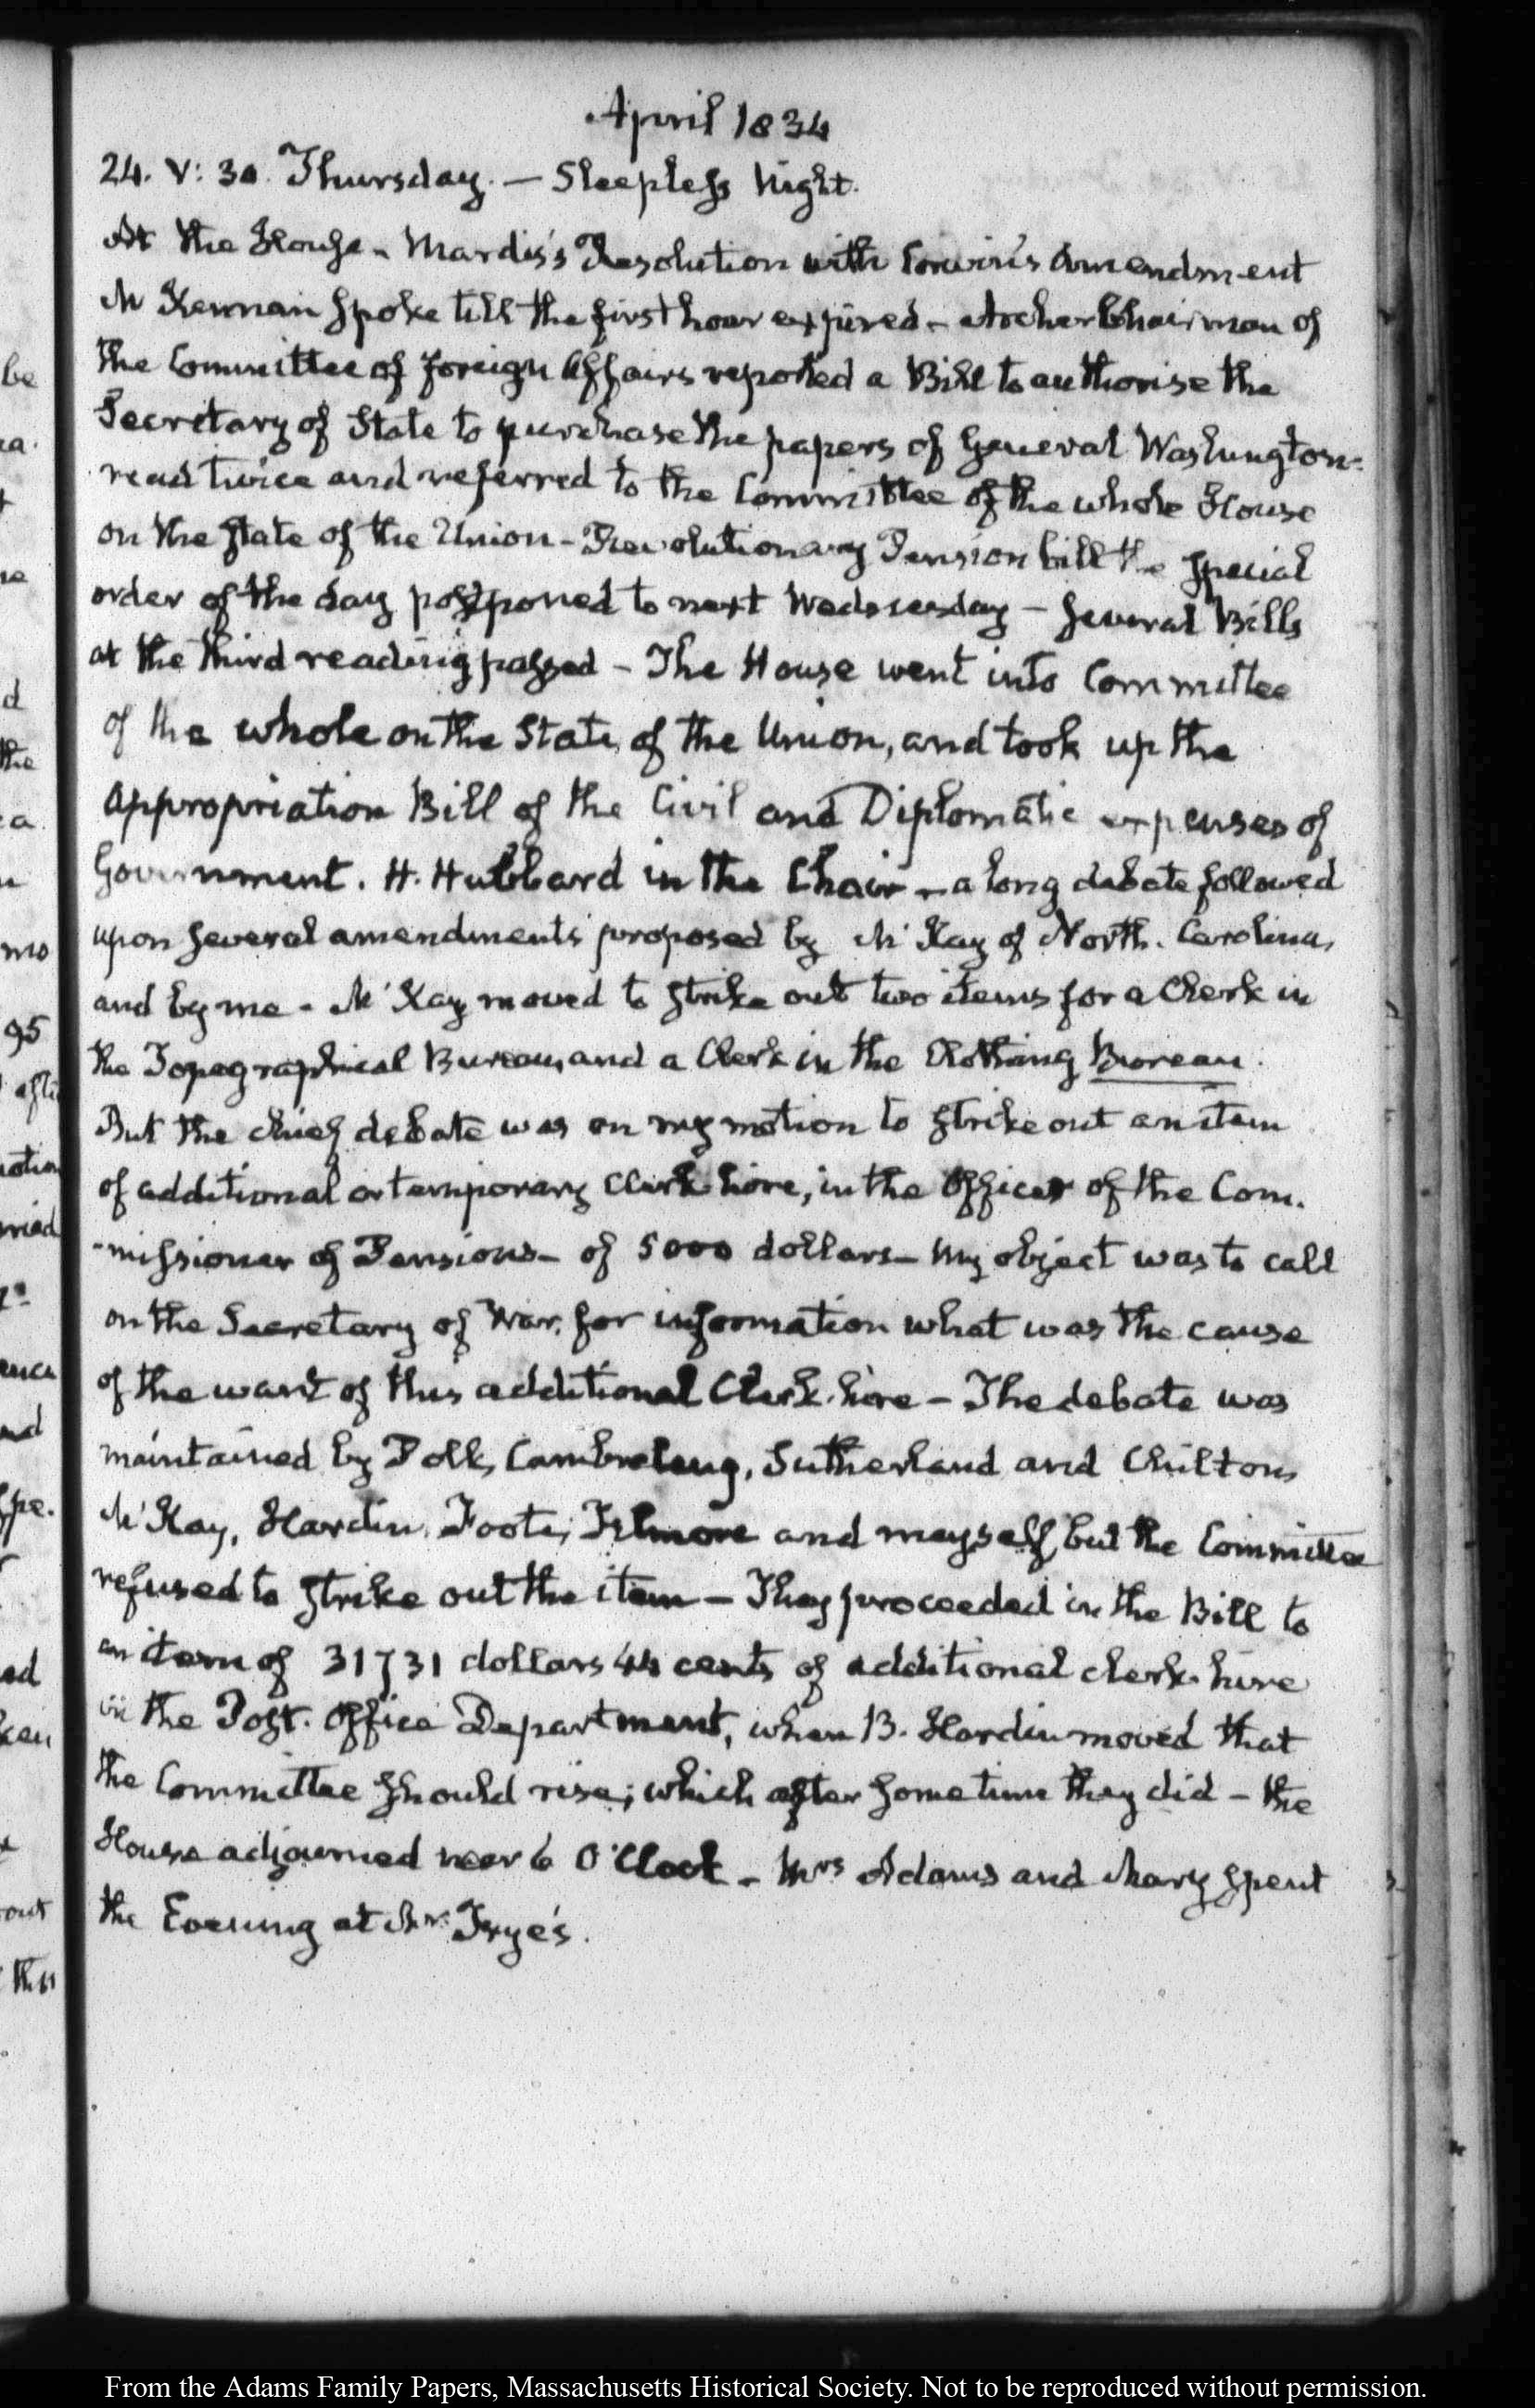 April 1834
24. V: 30. Thursday. — Sleepless Night.
At the House - Mardis's Resolution with Corwin's Amendment
McKennan spoke till the first hour expired - Archer Chairman of
the Committee of foreign Affairs reported a Bill to authorise the
Secretary of State to purchase the papers of General Washington-
read twice and referred to the Committee of the whole House
on the State of the Union - Revolutionary Pension bill the special
order of the day postponed to next Wednesday - several Bills
at the third reading passed - The House went into Committee
of the whole on the State of the Union, and took up the
Appropriation Bill of the Civil and Diplomatic expenses of
Government. H. Hubbard in the Chair - a long debate followed
upon several amendments proposed by McKay of North. Carolina,
and by me - McKay moved to strike out two items for a Clerk in
the Topographical Bureau, and a Clerk in the Clothing Bureau.
But the chief debate was on my motion to strike out an item
of additional or temporary Clerk hire, in the Office of the Com.
-missioner of Pensions - of 5000 dollars - My object was to call
on the Secretary of War, for information what was the cause
of the want of this additional Clerk-hire - The debate was
maintained by Polk, Cambreleng, Sutherland and Chilton,
McKay, Hardin, Foote, Filmore and mayself, but the Committee
refused to strike out the item - They proceeded in the Bill to
an item of 31731 dollars 44 cents of additional clerk-hire
in the Post. Office Department, when B. Hardin moved that
the Committee should rise; which after some time they did - the
House adjourned near 6 O'Clock - Mrs Adams and Mary spent
the Evening at Mr. Frye's.
be
d
the
mo
95
ad
out
From the Adams Family Papers, Massachusetts Historical Society. Not to be reproduced without permission.